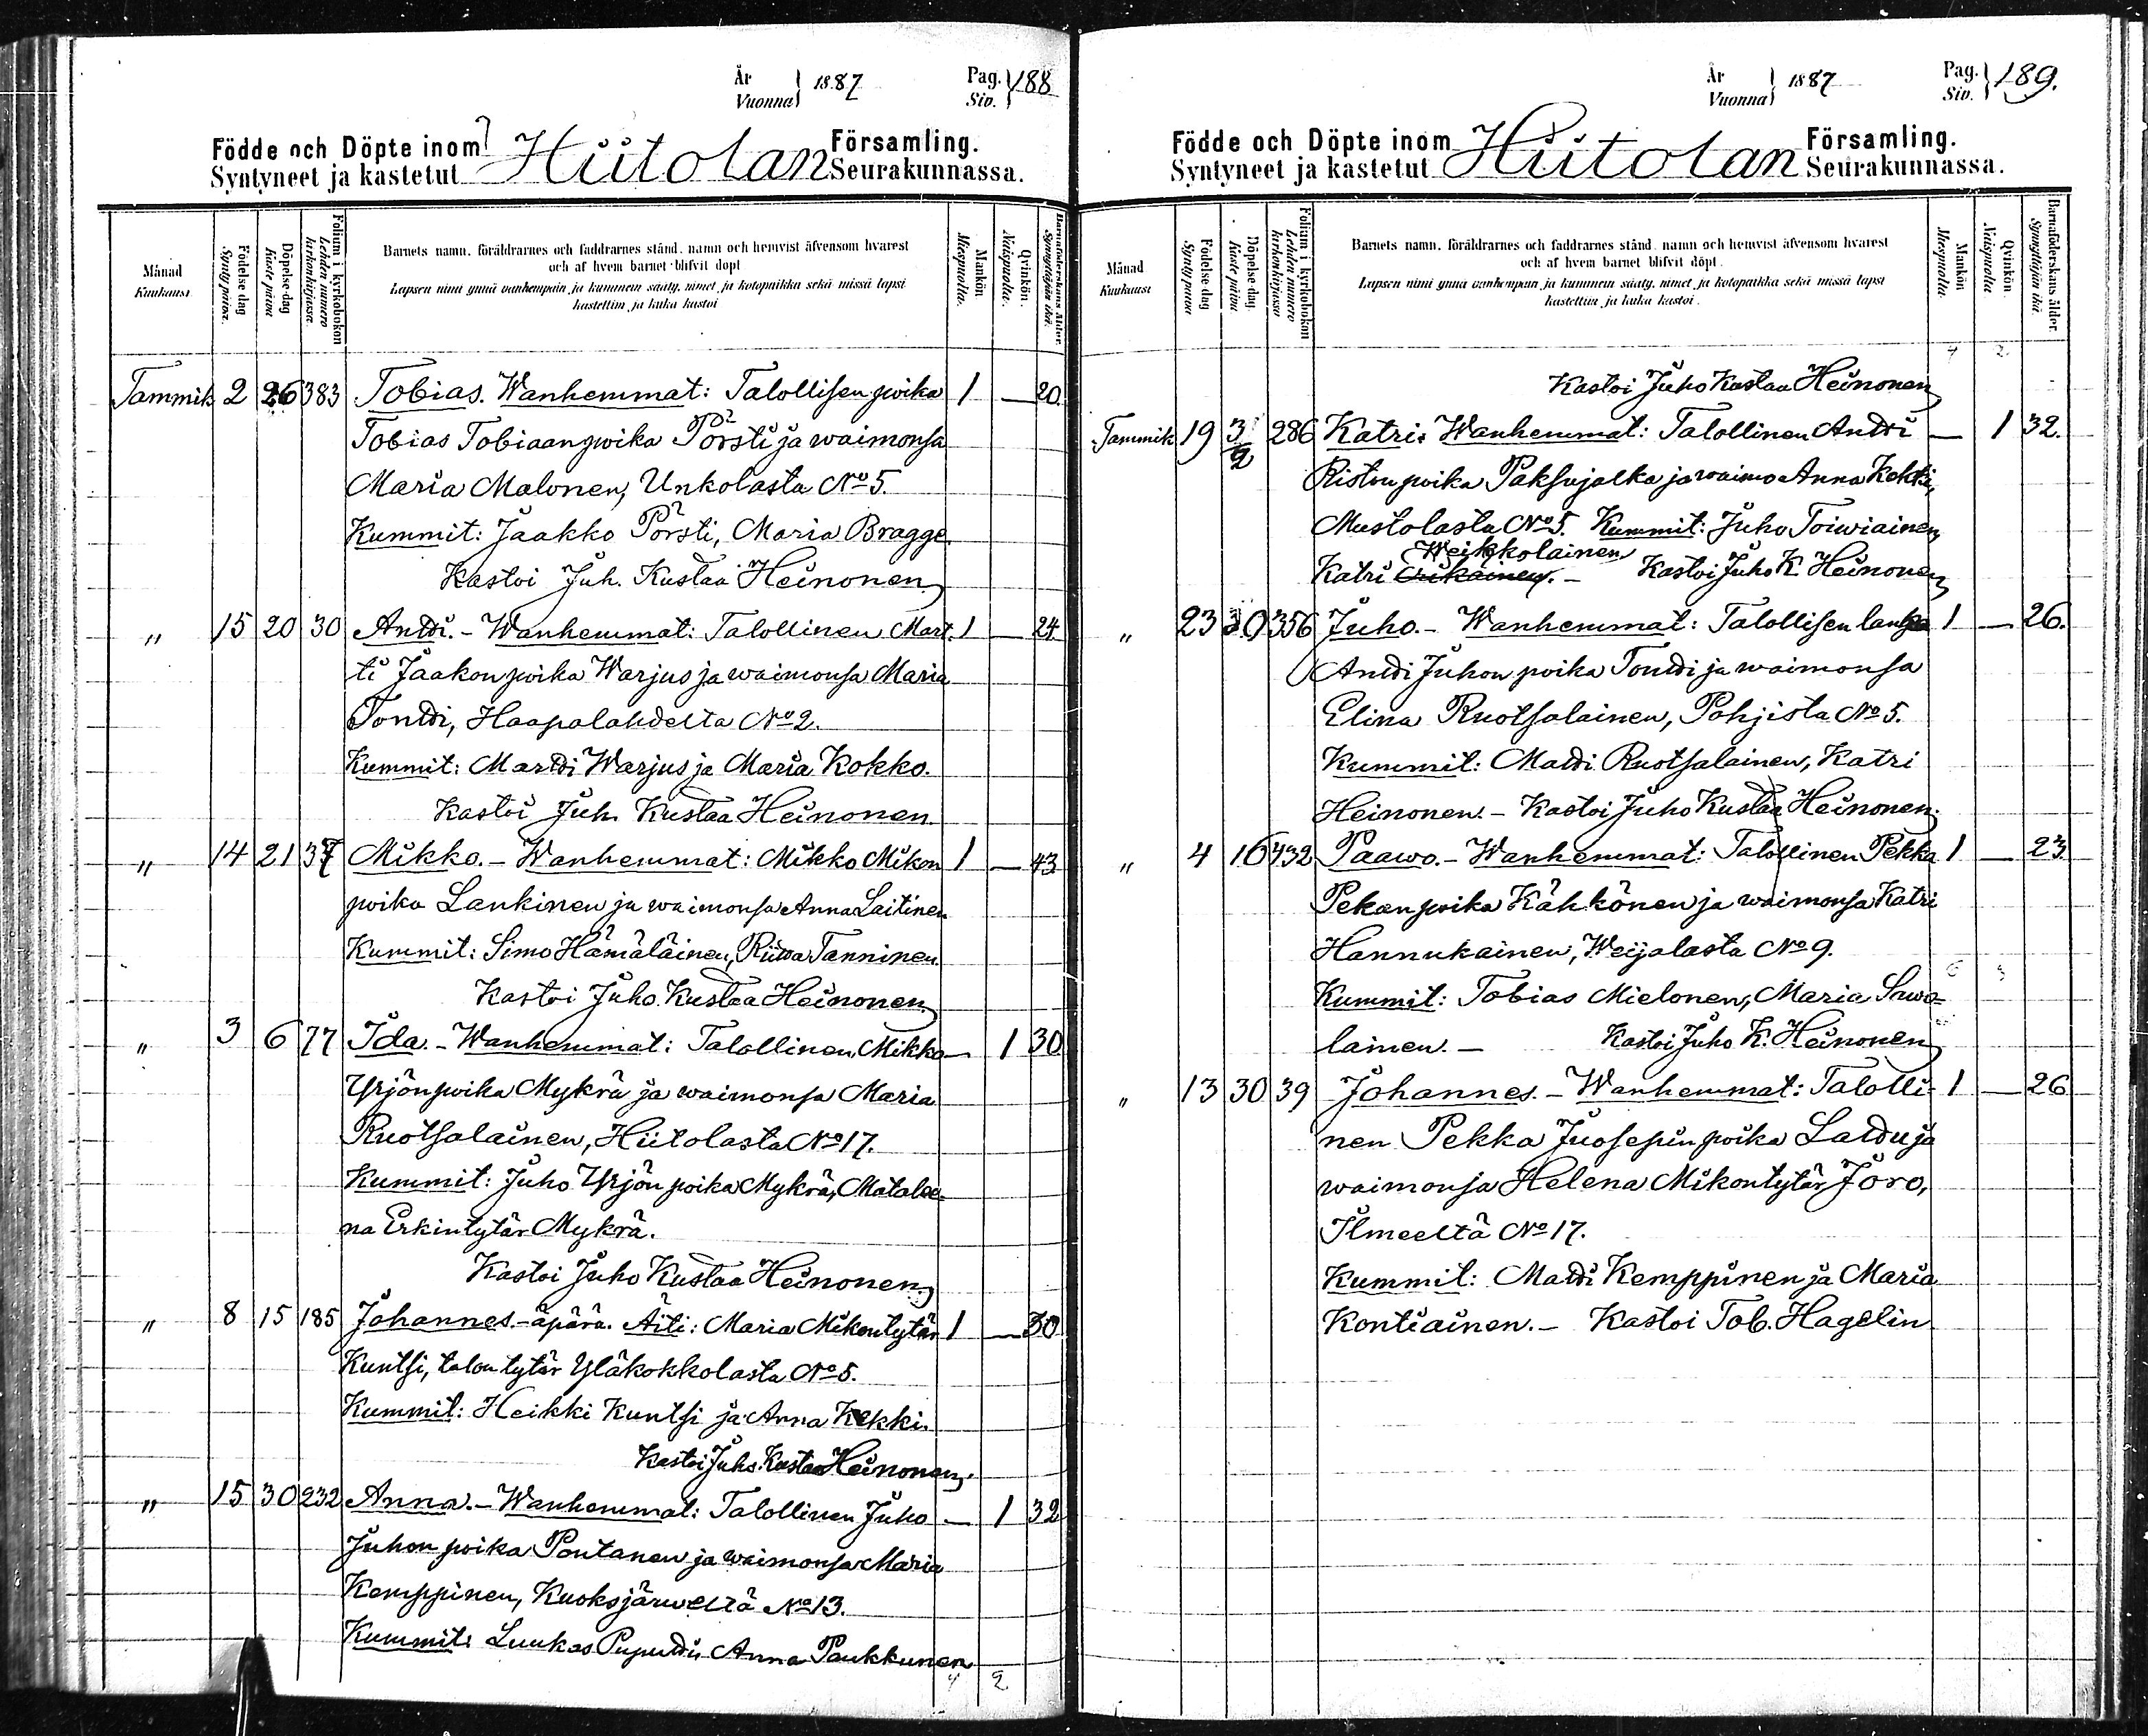 År Vuonna } 1887 Pag. Siv. } 188
Födde och Döpte inom Hiitolan Församling.
Syntyneet ja kastetut Seurakunnassa.
Månad Kuukausi
Födelse dag Synty päivä.
Döpelse-dag Kaste päivä
Folium i kyrkobokon Lehden numero kirkonkirjassa
Barnets namn, föräldrarnes och faddrarnes stånd, namn och hemvist äfvensom hvarest
och af hvem barnet blifvit döpt
Lapsen nimi ynnä vanhempain ja kummein sääty, nimet ja kotopaikka sekä missä lapsi
kastettiin ja kuka kastoi
Mankön Miespuolta.
Qvinkön. Naispuolta.
Barnaföderskans ålder. Synnyttäjän ikä.
Tammik 2 26 383 Tobias. Wanhemmat: Talollisen poika 1 — 20.
Tobias Tobiaanpoika Pörsti ja waimonsa
Maria Malonen, Unkolasta No 5.
Kummit: Jaakko Pörsti, Maria Bragge
Kastoi Juh. Kustaa Heinonen
" 15 20 30 Antti. - Wanhemmat: Talollinen Mart- 1 — 24
ti Jaakonpoika Warjus ja waimonsa Maria
Tontti, Haapalahdelta No 2.
Kummit: Martti Warjus ja Maria Kokko.
Kastoi Juh. Kustaa Heinonen.
" 14 21 37 Mikko. - Wanhemmat: Mikko Mikon 1 — 43
poika Lankinen ja waimonsa Anna Laitinen
Kummit: Simo Hämäläinen, Riitta Tanninen.
Kastoi Juho Kustaa Heinonen
" 3 6 77 Ida. - Wanhemmat: Talollinen Mikko — 1 30
Yrjönpoika Mykrä ja waimonsa Maria
Ruotsalainen, Hiitolasta No 17.
Kummit: Juho Yrjön poika Mykrä, Matalee-
na Erkintytär Mykrä.
Kastoi Juho Kustaa Heinonen
" 8 15 185 Johannes. - äpärä. Äiti: Maria Mikontytär 1 — 30
Kuntsi, talon tytär Yläkokkolasta No 5.
Kummit: Heikki Kuntsi ja Anna Kekki.
Kastoi Juho Kustaa Heinonen.
" 15 30 232 Anna. - Wanhemmat: Talollinen Juho — 1 32
Juhon poika Pontanen ja waimonsa Maria
Kemppinen, Kuoksjärweltä No 13.
Kummit: Luukas Puputti, Anna Paukkunen
4 2
År Vuonna } 1887 Pag. Siv. } 189.
Födde och Döpte inom Hiitolan Församling.
Syntyneet ja kastetut Seurakunnassa.
Månad Kuukausi
Födelse dag Synty päivä
Döpelse dag. Kaste päivä
Folium i kyrkobokon Lehden numero kirkonkirjassa
Barnets namn, föräldrarnes och faddrarnes stånd, namn och hemvist äfvensom hvarest
och af hvem barnet blifvit döpt.
Lapsen nimi ynnä vanhempain ja kummein sääty, nimet ja kotopaikka sekä missä lapsi
kastettiin ja kuka kastoi.
Mankön Miespuolta.
Qvinkön. Naispuolta
Barnaföderskans ålder. Synnyttäjän ikä.
4 2
Kastoi Juho Kustaa Heinonen
Tammik 19 3/2 286 Katri. Wanhemmat: Talollinen Antti — 1 32.
Riston poika Paksujalka ja waimo Anna Kekki,
Mustolasta No 5. Kummit: Juho Toiwiainen,
Weikkolainen
Katri - Kastoi Juho K. Heinonen
" 23 30 356 Juho. - Wanhemmat: Talollisen lanko 1 — 26.
Antti Juhon poika Tontti ja waimonsa
Elina Ruotsalainen, Pohjista No 5.
Kummit: Matti Ruotsalainen, Katri
Heinonen. - Kastoi Juho Kustaa Heinonen.
" 4 16 432 Paawo. - Wanhemmat: Talollinen Pekka 1 — 23
Pekanpoika Kähkönen ja waimonsa Katri
Hannukainen, Weijalasta No 9.
Kummit: Tobias Mielonen, Maria Sawo-
lainen. - Kastoi Juho K. Heinonen
" 13 30 39 Johannes. - Wanhemmat: Talolli- 1 — 26
nen Pekka Juosepin poika Lattu ja
waimonsa Helena Mikontytär Joro,
Ilmeeltä No 17.
Kummit: Matti Kemppinen ja Maria
Kontiainen. - Kastoi Tob. Hagelin